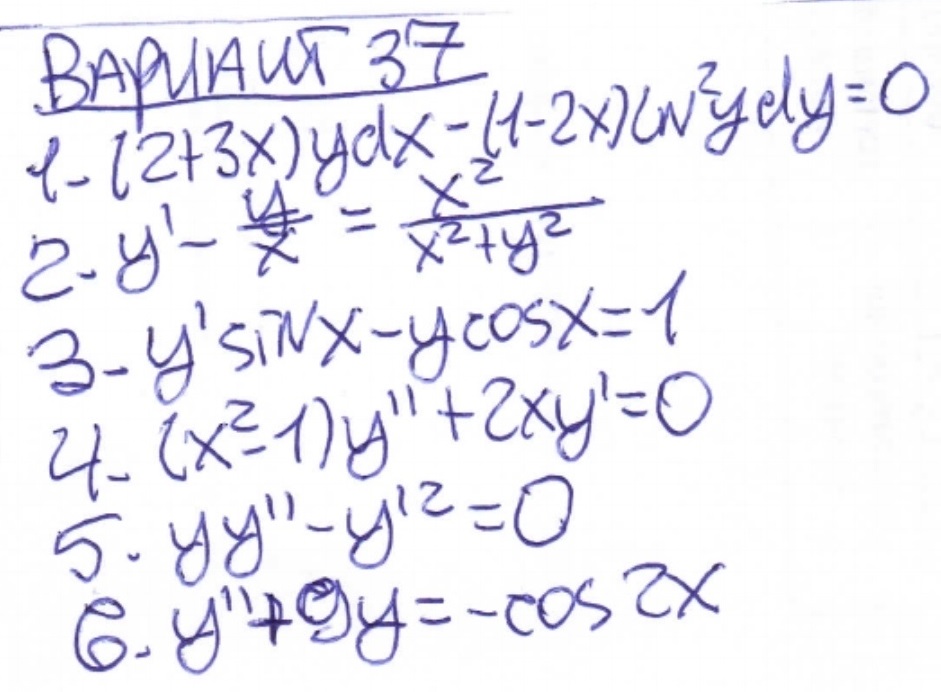 ВАРИАНТ 37
1-(2+3x)ydx-(1-2x)ln²ydy=0
2-y'-y/x=x²/(x²+y²)
3-y'sinx-ycosx=1
4-(x²-1)y''+2xy'=0
5.yy''-y'²=0
6.y''+9y=-cos2x